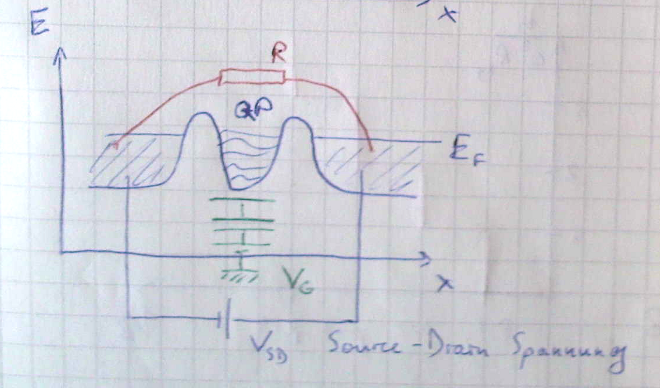 x
E
R
QP
E_F
V_G
x
V_SD Source-Drain Spannung